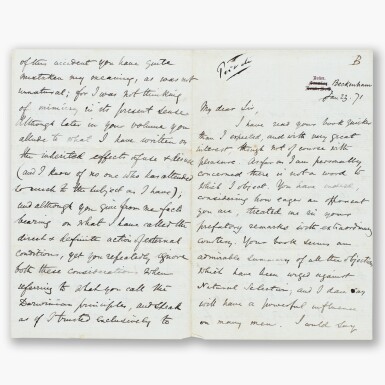 Private
B
Down,
Beckenham
Jan 23. 71
My dear Sir,
I have read your book quicker
than I expected, and with very great
interest though not of course with
pleasure. As far as I am personally
concerned there is not a word to
which I object. You have indeed,
considering how eager an opponent
you are, treated me in your
prefatory remarks with extraordinary
courtesy. Your book seems an
admirable summary of all the objections
which have been urged against
Natural Selection, and I dare say
will have a powerful influence
on many men. I would say
of this incident you have quite
mistaken my meaning, as was not
unnatural; for I was not thinking
of mimicry in its present sense
although later in your volume you
allude to what I have written on
the inherited effects of use & disuse
(and I know of no one who has attended
so much to the subject as I have),
and although you give from me facts
bearing on what I have called the
direct & definite action of external
conditions, yet you repeatedly ignore
both these considerations when
referring to what you call the
Darwinian principles, and speak
as if I trusted exclusively to